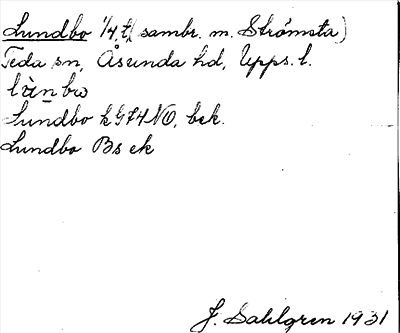 Lundbo 1/4 t, (sambr. m. Strömsta)
Teda sn, Åsunda hd, Upps. l.
Lundbo kG74NO, bek.
Lundbo Bs ek
J. Sahlgren 1931